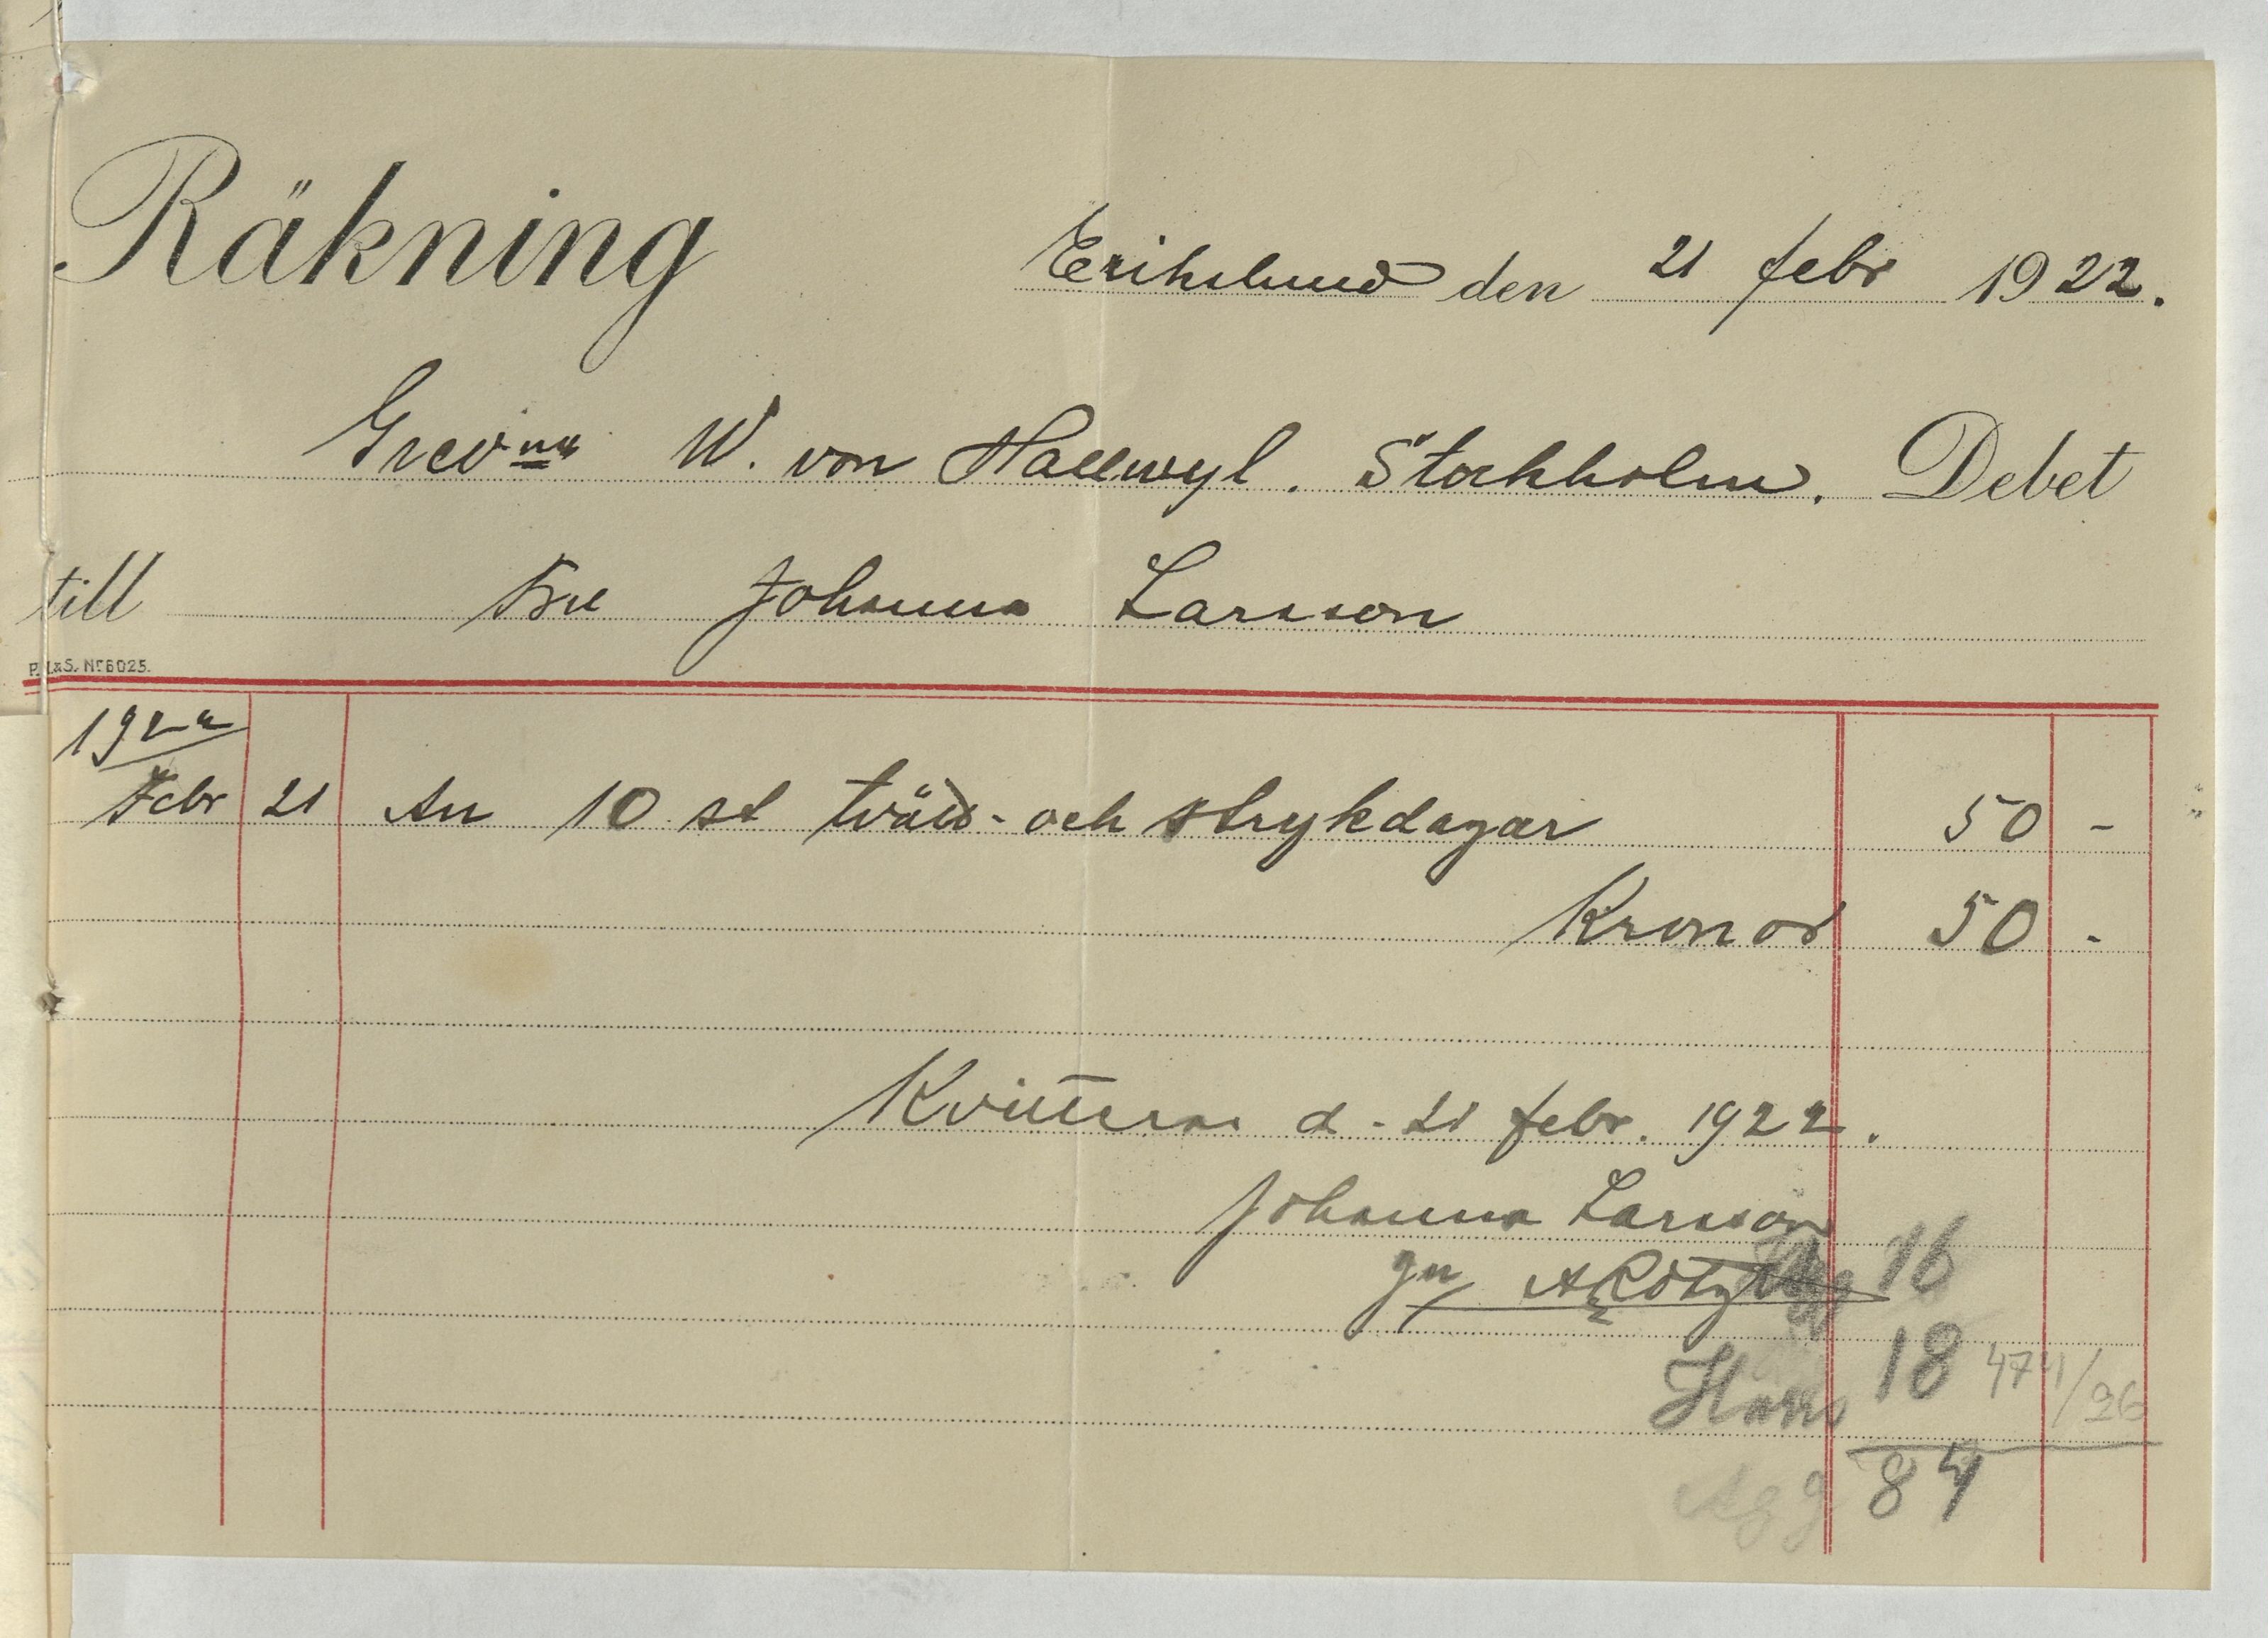 Räkning
Erikslund den 21 febr 1922.
Grevnn W. von Hallwyl. Stockholm. Debet
till Fru Johanna Larsson
P. L&S. No 6025.
1922
Febr 21 An 10 st tvätt- och strykdagar 50 -
Kronor 50 -
Kvitteras d. 21 febr. 1922.
Johanna Larsson
gn
16
18 474/26
Hans
Agg 84